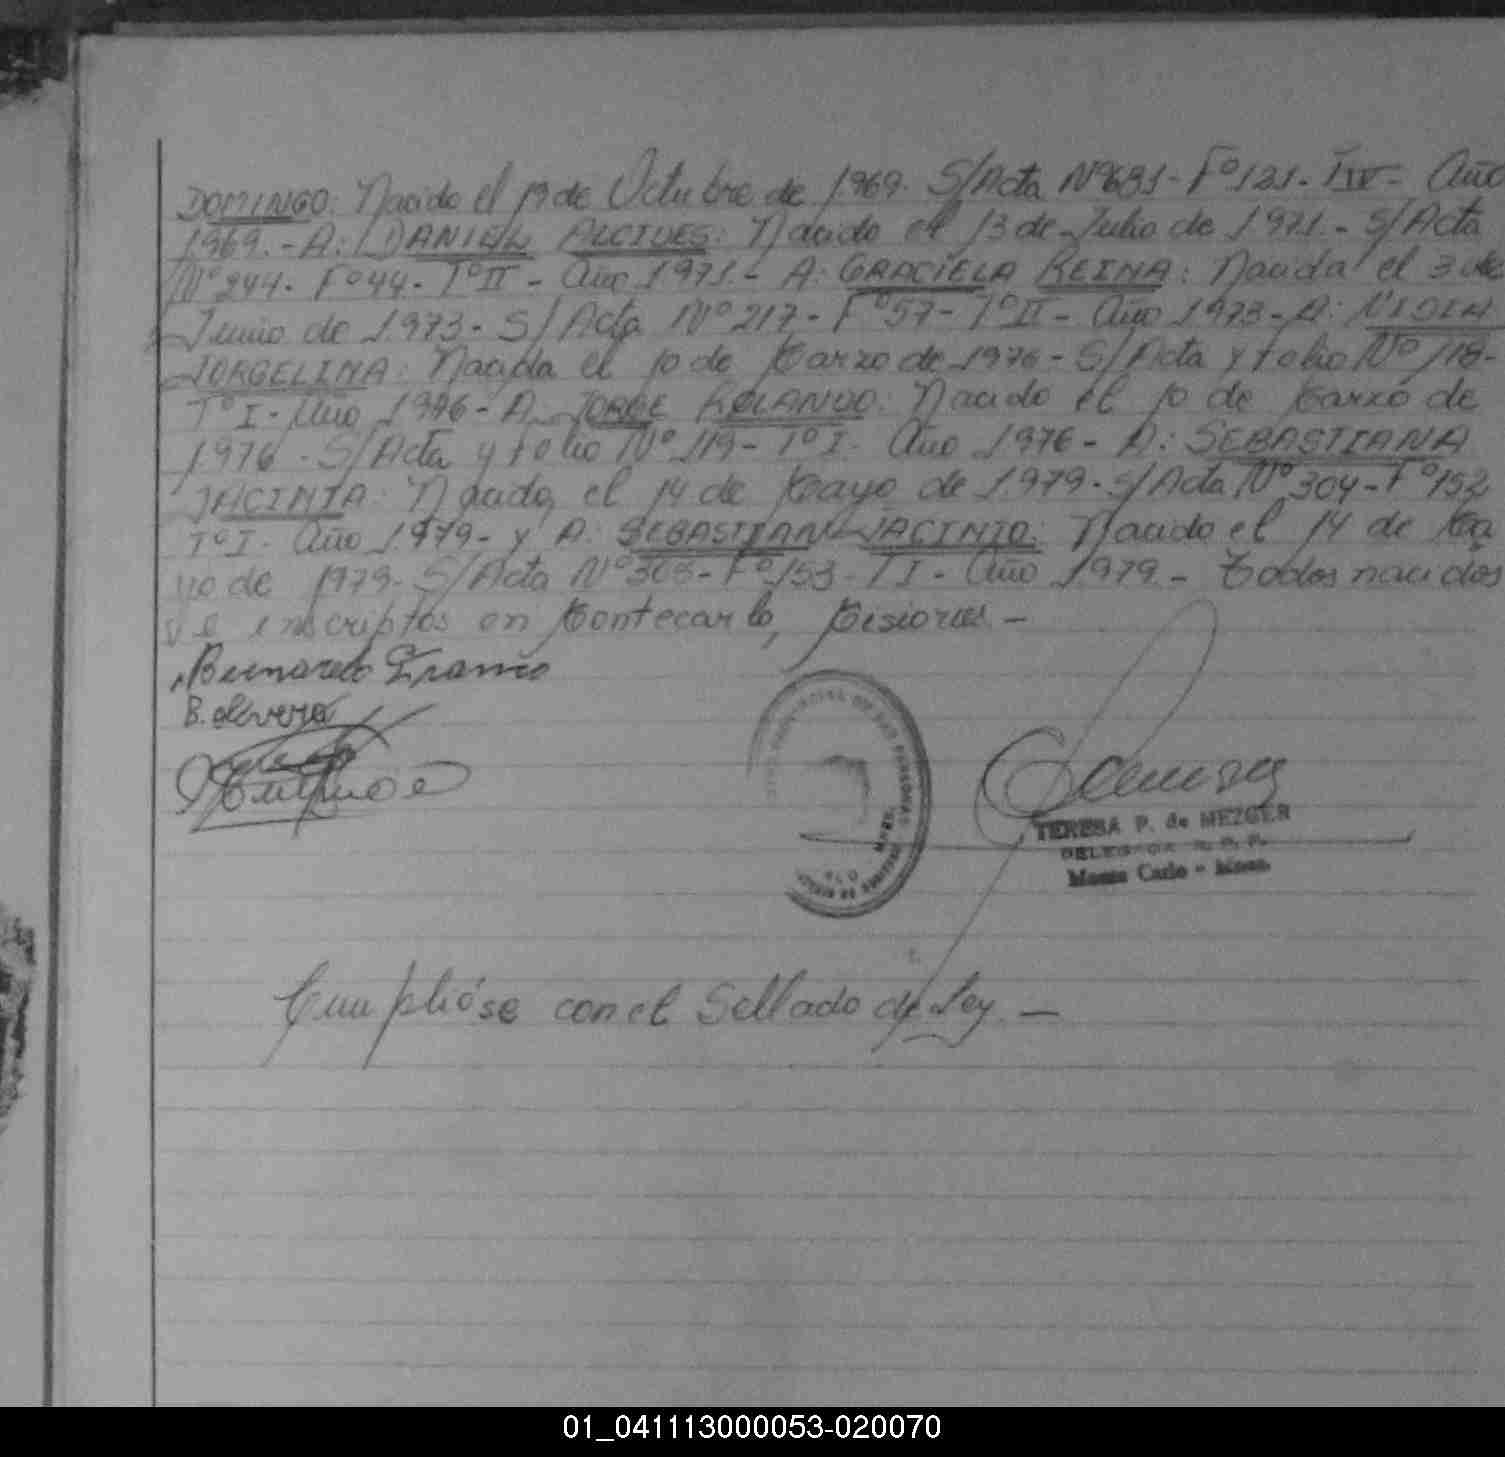 DOMINGO: Nacido el 19 de Octubre de 1969. S/Acta Nº631- Fº121. TIV- Año
1969.- A: DANIEL ALCIDES: Nacido el 13 de Julio de 1971.- S/Acta
Nº244- Fº44- TºII - Año 1971.- A: GRACIELA REINA: Nacida el 3 de
Junio de 1973- S/Acta Nº217- Fº57- TºII- Año 1973- A: NIDIA
JORGELINA: Nacida el 10 de Marzo de 1976- S/Acta y folio Nº118-
TºI- Año 1976- A JORGE ROLANDO: Nacido el 10 de Marzo de
1976. S/Acta y folio Nº119- TºI. Año 1976- A: SEBASTIANA
JACINTA: Nacida el 14 de Mayo de 1979- S/Acta Nº304- Fº152
TºI. Año 1979- y A: SEBASTIAN JACINTO: Nacido el 14 de Ma
yo de 1979- S/Acta Nº Fº153- TI- Año 1979.- Todos nacidos
e inscriptos en Montecarlo, Misiones.-
Bernardo Franco
B. olivera
TERESA P. de MEZGER
DELEGADA R. P.
Monte Carlo - Mnes.
Cumplióse con el Sellado de Ley.-
01_041113000053-020070